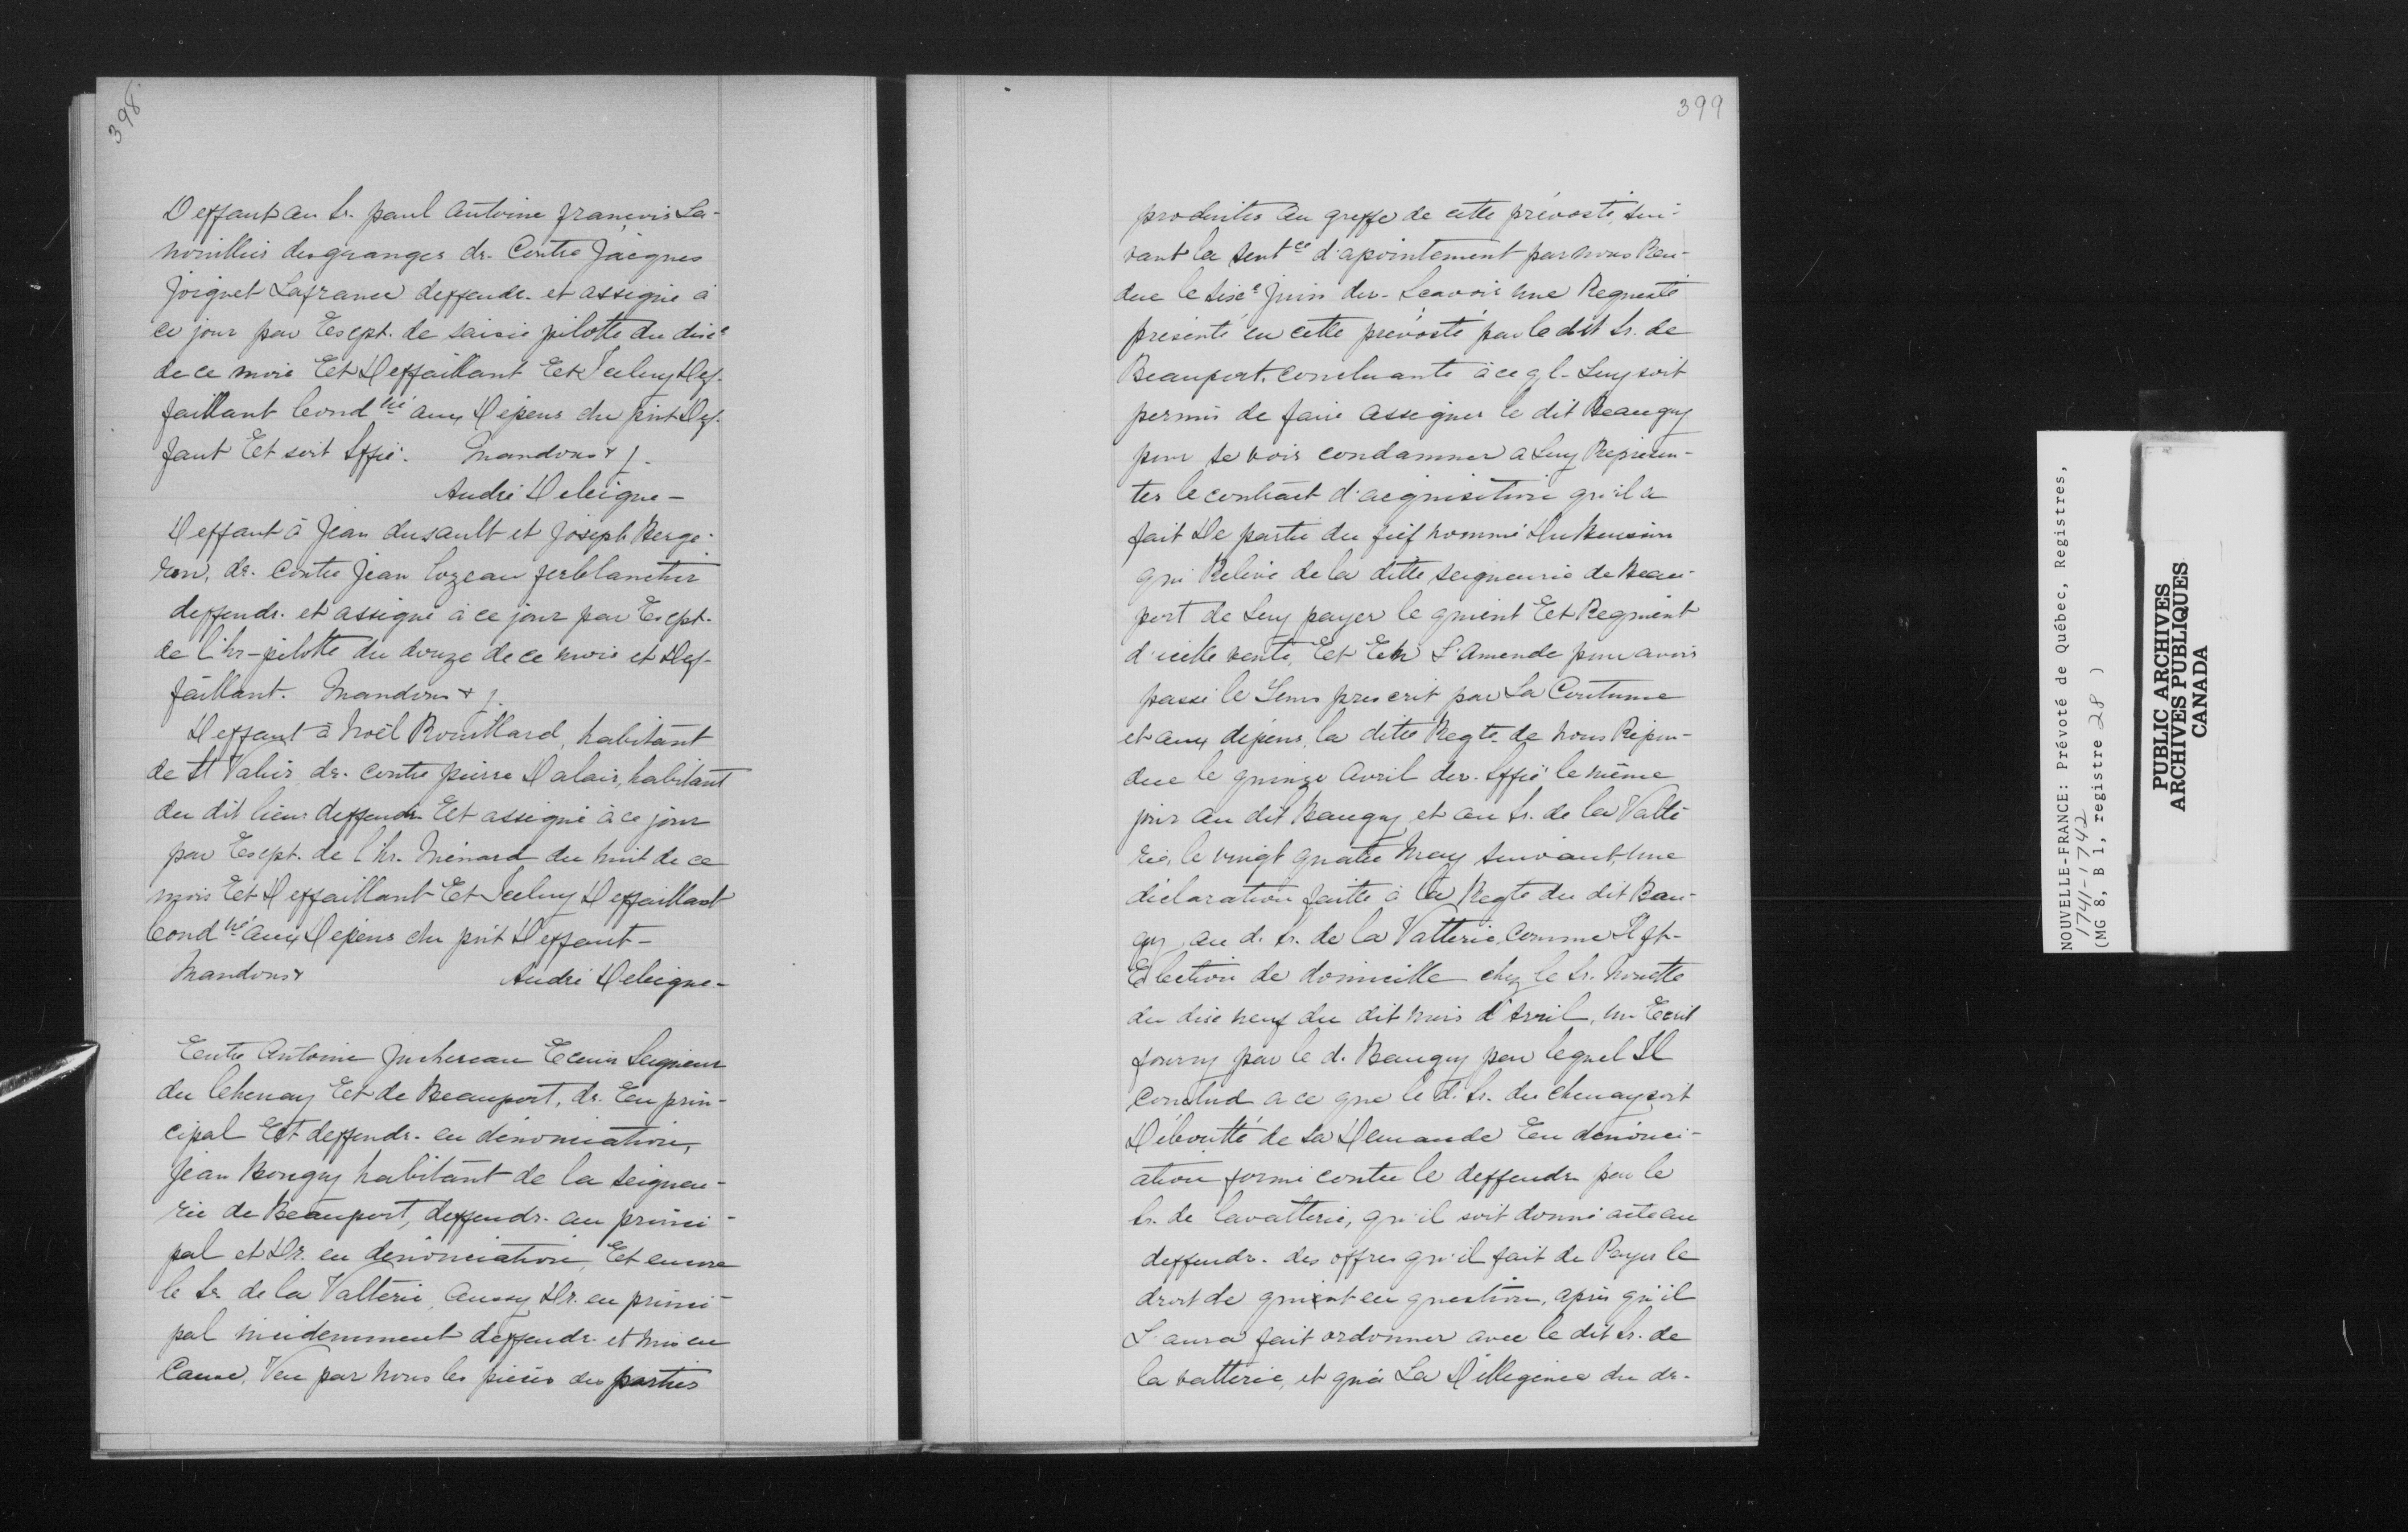 398
Deffaut au Sr. paul Antoine françois La-
nouillier desgranges dr. Contre Jacques
Joignet Lafrance deffendr. et assigné à
ce jour par Exept. de saisie pilotte du dixe
de ce mois Et Deffaillant Et Iceluy Def-
faillant Condné aux Dépens du pnt Def-
faut Et soit Sffié. Mandons & j.
André Deleigne -
Deffaut à Jean dusault et Joseph Berge-
ron, dr. contre Jean Lozeau ferblantier
deffendr. et assigné à ce jour par Exept.
de l'hr - pilotte du douze de ce mois et Def-
faillant. Mandons & j.
Deffaut à Noël Rouillard, habitant
de St Valier, dr. contre pierre Dalair, habitant
du dit lieu deffendr Et assigné à ce jour
par Exept. de l'hr. Ménard du huit de ce
mois Et Deffaillant Et Iceluy Deffaillant
Condné aux Dépens du pnt Deffaut -
Mandons & André Deleigne -
Entre Antoine Juchereau Ecuier Seigneur
du Chenay Et de Beauport, dr. En prin-
cipal Et deffendr. en dénonciation,
Jean Bougy habitant de la seigneu-
rie de Beauport, deffendr. au princi-
pal et Dr. en denonciation, Et encore
le Sr. de la Valterie, Aussy Dr. en princi-
pal incidemment deffendr. et mis en
Cause, Veu par Nous les pièces des parties
399
produites au greffe de cette prévosté, sui-
vant la sentce d'apointement par nous Ren-
due le sixe Juin der. Scavoir une Requeste
présenté en cette prévosté par le dit Sr. de
Beauport, concluante à ce q l - Luy soit
permis de faire assigner le dit Beaugy
pour se voir condamner a Luy Représen-
ter le contract d'acquisition qu'il a
fait De partie du fief nommé Du Buisson
qui Relève de la ditte seigneurie de Beau-
port de Luy payer le quient Et Requient
d'icelle vente, Et En L'Amende pour avoir
passé le Tems prescrit par La Coutume
et aux dépens, la ditte Reqte. de nous Répon-
due le quinze Avril der. Sffié le même
jour au dit Baugy et au Sr. de la Valte-
rie, le vingt quatre May suivant, une
déclaration faitte à la Reqte du dit Bau-
gy, au d. Sr. de la Valterie, Comme Il ft -
Election de domicille chez le Sr. Nouette
du dixe neuf du dit mois d'Avril, un Ecrit
fourny par le d. Baugy par lequel Il
Conclud a ce que le d. Sr. du chenay soit
Déboutté de sa Demande En dénonci-
ation formé contre le deffendr par le
Sr. de lavatterie, qu'il soit donné acte au
deffendr. des offres qu'il fait de Payer le
droit de quient en question, après qu'il
L'aura fait ordonner avec le dit Sr. de
la valterie, et qu'à La Dilligence du dr.
NOUVELLE-FRANCE: Prévoté de Québec, Registres,
1741-1742
(MG 8, B 1, registre 28 )
PUBLIC ARCHIVES
ARCHIVES PUBLIQUES
CANADA